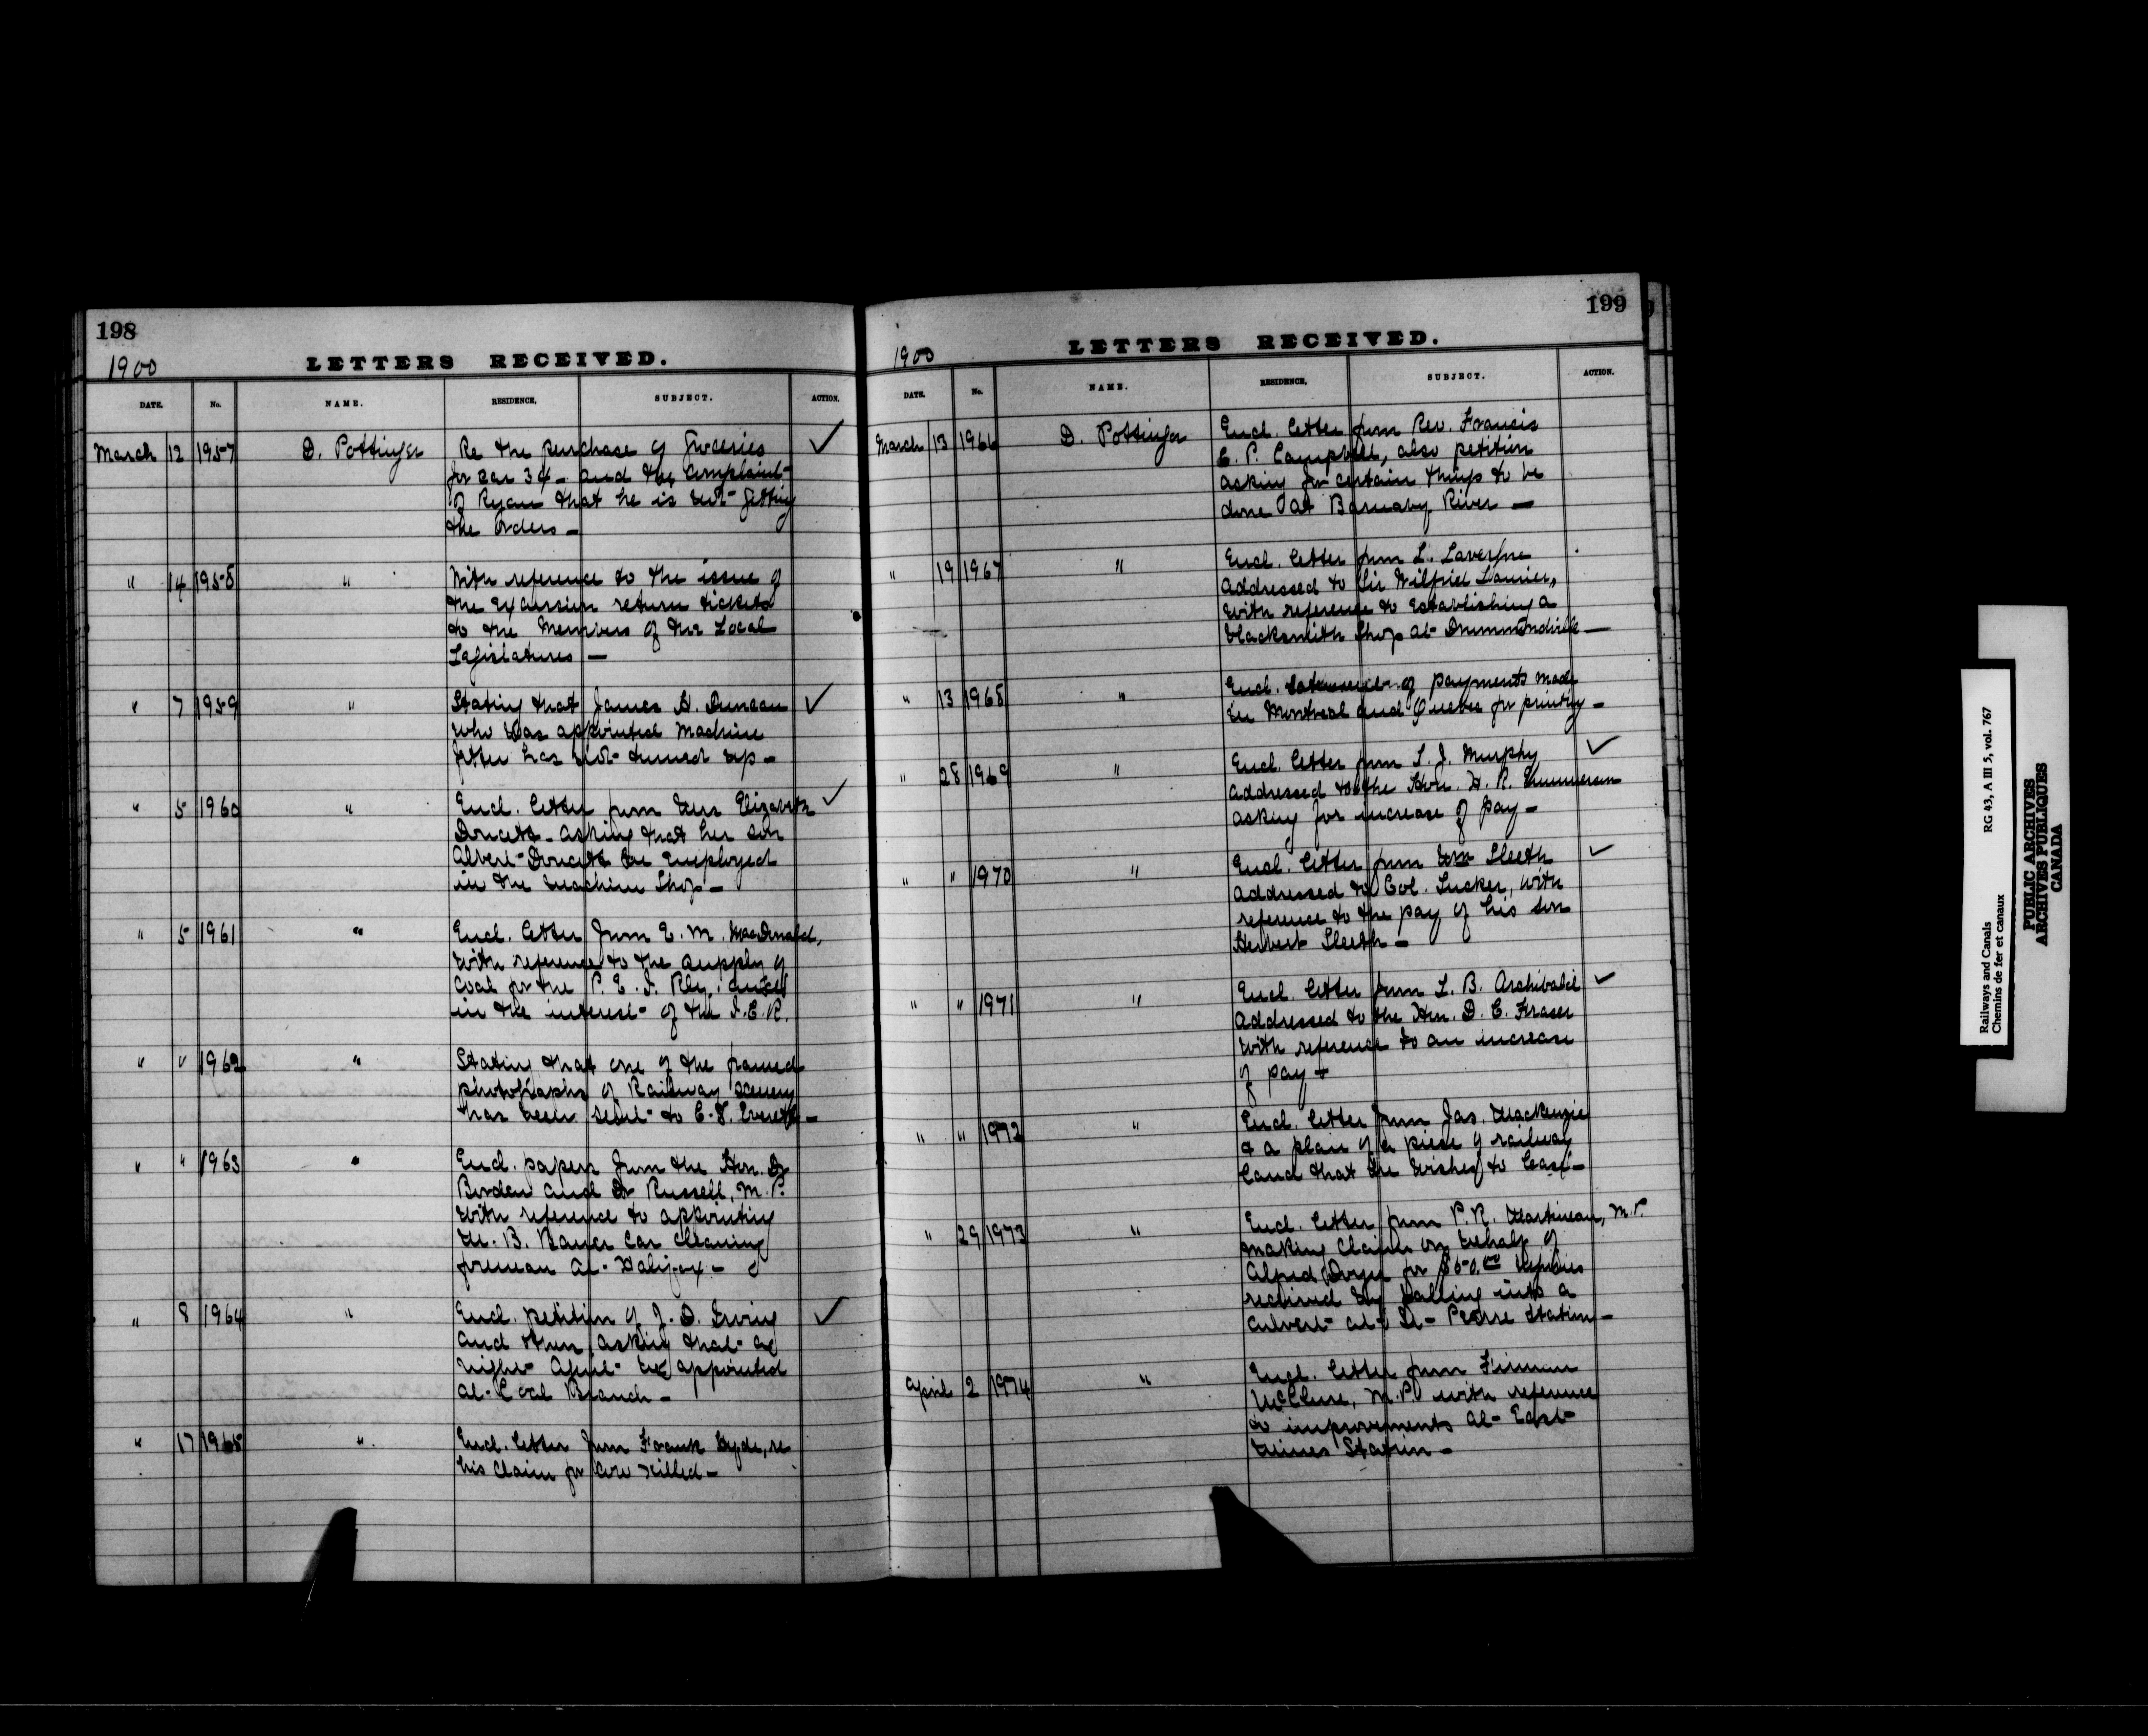 198
1900
LETTERS RECEIVED.
DATE. No. NAME. RESIDENCE, SUBJECT. ACTION.
March 12 1957 D. Pottinger Re the purchase of Groceries ✓
for car 34 - and the complaint
of Ryan that he is not getting
the orders -
" 14 1958 " With reference to the issue of
the excursion return tickets
to the Members of the Local
Legislatures -
" 7 1959 " Stating that James H. Duncan ✓
who was appointed machine
fitter has not turned up -
" 5 1960 " Encl. letter from Mrs Elizabeth ✓
Doucett - asking that her son
Albert Doucett be employed
in the machine Shop -
" 5 1961 " Encl. letter from E. M. MacDonald,
with reference to the supply of
coal for the P. E. I. Rly.
in the interest of the I. C. R.
" " 1962 " Stating that one of the framed
photographs of Railway scenery
has been sent to C. F. Everett -
" " 1963 " Encl. papers from the Hon. Dr
Borden and Dr Russell, M. P.
with reference to appointing
B. car cleaning
foreman at Halifax -
" 8 1964 " Encl. petition of J. D. Irving ✓
and others asking that a
night Agent be appointed
at Coal Branch -
" 17 1965 " Encl. letter from Frank Hyde, re
his claim for cow killed -
199
1900
LETTERS RECEIVED.
DATE. No. NAME. RESIDENCE, SUBJECT. ACTION.
March 13 1966 D. Pottinger Encl. letter from Rev. Francis
C. P. Campbell, also petition
asking for certain things to be
done at Barnaby River -
" 19 1967 " Encl. letter from L. Lavergne
addressed to Sir Wilfrid Laurier,
with reference to establishing a
blacksmith shop at Drummondville -
" 13 1968 " Encl. statement of payments made
in Montreal and Quebec for printing -
" 28 1969 " Encl. letter from T. J. Murphy ✓
addressed to the Hon. H. R. Emmerson
asking for increase of pay -
" " 1970 " Encl. letter from Wm Sleeth ✓
addressed to Col. Tucker, with
reference to the pay of his son
Herbert Sleeth -
" " 1971 " Encl. letter from L. B. Archibald ✓
addressed to the Hon. D. C. Fraser
with reference to an increase
of pay -
" " 1972 " Encl. letter from Jas. MacKenzie
& a plan of a piece of railway
land that he wishes to lease -
" 29 1973 " Encl. letter from P. R. Martineau, M. P.
making claim on behalf of
Alfred for injuries
received by falling into a
culvert at St- Pierre Station -
April 2 1974 " Encl. letter from Firman
McClure, M. P. with reference
to improvements at East
Mines Station -
Railways and Canals RG 43, A III 5, vol. 767
Chemins de fer et canaux
PUBLIC ARCHIVES
ARCHIVES PUBLIQUES
CANADA